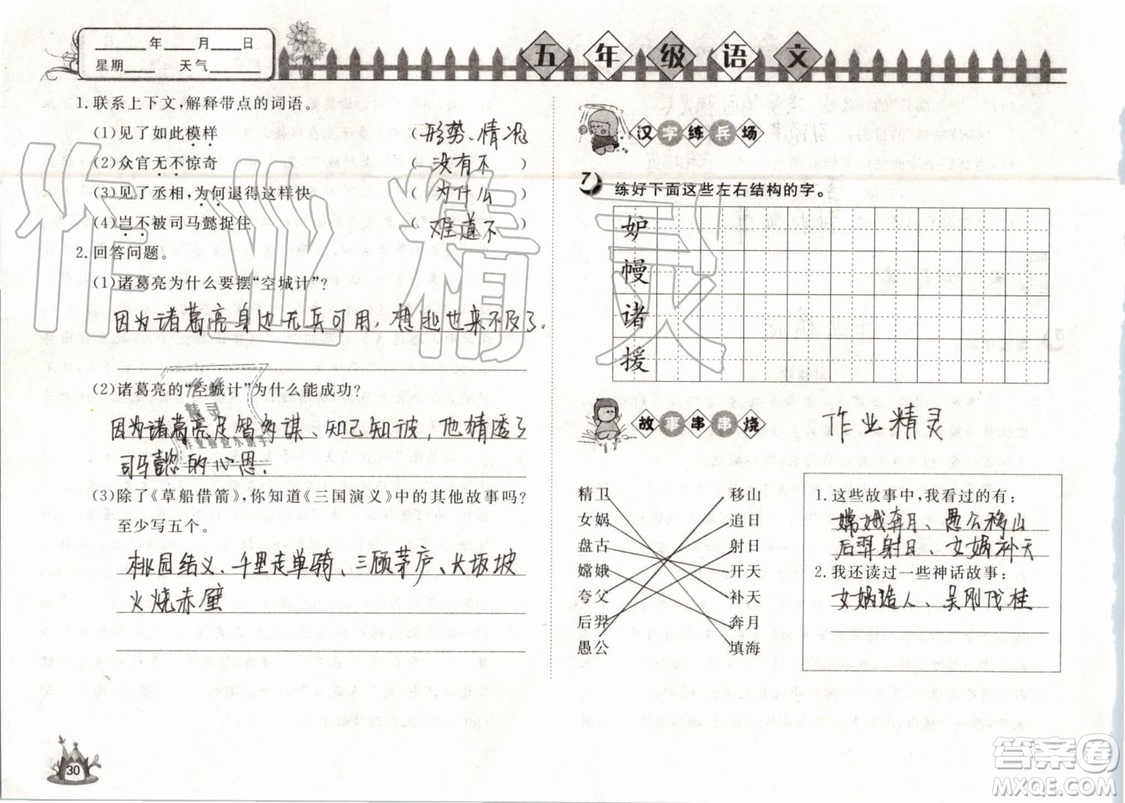 ____年____月____日
星期____ 天气____
五年级语文
1.联系上下文,解释带点的词语。
(1)见了如此模样 (形势、情况)
(2)众官无不惊奇 (没有不)
(3)见了丞相,为何退得这样快 (为什么)
(4)岂不被司马懿捉住 (难道不)
2.回答问题。
(1)诸葛亮为什么要摆“空城计”?
因为诸葛亮身边无兵可用,想逃也来不及了。
(2)诸葛亮的“空城计”为什么能成功?
因为诸葛亮足智多谋、知己知彼,他猜透了
司马懿的心思。
(3)除了《草船借箭》,你知道《三国演义》中的其他故事吗?
至少写五个。
桃园结义、千里走单骑、三顾茅庐、长坂坡
火烧赤壁
30
汉字练兵场
7
练好下面这些左右结构的字。
妒
幔
诸
援
故事串串烧
作业精灵
精卫 移山
女娲 追日
盘古 射日
嫦娥 开天
夸父 补天
后羿 奔月
愚公 填海
1.这些故事中,我看过的有:
嫦娥奔月、愚公移山
后羿射日、女娲补天
2.我还读过一些神话故事:
女娲造人、吴刚伐桂
作业精灵
答案圈
MXQE.COM